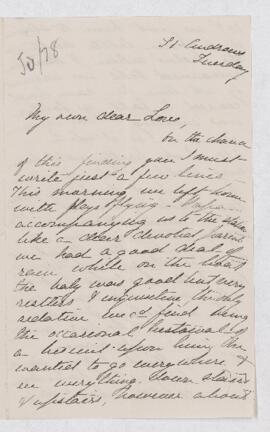 50/78
St. Andrews
Tuesday
My own dear Love,
on the chance
of this finding you I must
write just a few lines
This morning we left home
with flags flying
accompanying us to the
like a dear devoted
we had a good deal of
rain while on the boat
the baby was good but very
restless I
sedative we could find being
the occasional bestowal of
a biscuit upon him. He
wanted to go everywhere &
see everything. Down stairs
& upstairs, however about